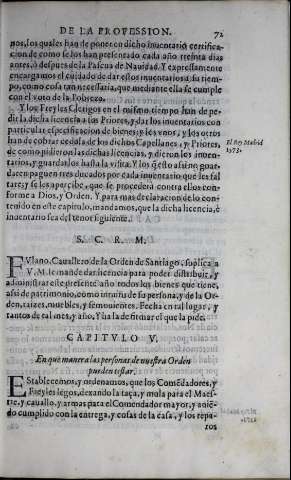 DE LA PROFESSION. 72
nos, los quales han de poner en dicho inventario certifica-
cion de como se los han presentado cada año treinta dias
antes, ò despues de la Pascua de Navidad. Y expressamente
encargamos el cuidado de dar estos inventarios à su tiem-
po, como cosa tan necessaria, que mediante ella se cumple
con el voto de la Pobreza.
Y los Freyles Clerigos en el mismo tiempo han de pe-
dir la dicha licencia à sus Priores, y dar los inventarios con
particular especificacion de bienes; los vnos, y los otros
han de cobrar cedula de los dichos Capellanes, y Priores,
de como pidieron las dichas licencias, y dieron los inven-
tarios, y guardarlos hasta la visita. Y los que assi no guar-
daren paguen tres ducados por cada inventario que les fal-
tare; y se les apercibe, que se procederà contra ellos con-
forme à Dios, y Orden. Y para mas declaracion de lo conte-
nido en este capitulo, mandamos, que la dicha licencia, è
inventario sea del tenor siguiente.
El Rey Madrid
1573.
S. C. R. M.
FVlano, Cavallero de la Orden de Santiago, suplica à
V. M. le mande dar licencia para poder distribuir, y
administrar este presente año todos los bienes que tiene,
assi de patrimonio, como intuitu de su persona, y de la Or-
den, raizes, muebles, y semovientes. Fecha en tal lugar, y
tantos de tal mes, y año. Y ha la de firmar el que la pide.
CAPITVLO V.
En què manera las personas de nuestra Orden
pueden testar.
EStablecemos, y ordenamos, que los Comẽdadores, y
Freyles legos, dexando la taça, y mula para el Maes-
tre, y cavallo, y armas para el Comendador mayor, y avię̃-
do cumplido con la entrega, y cosas de la casa, y los repa-
ros